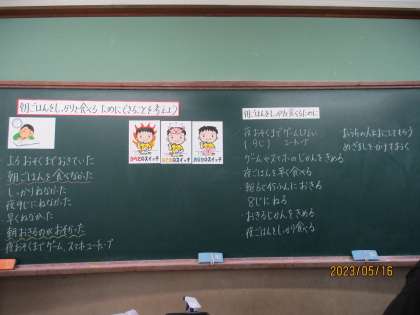 朝ごはんをしっかり食べるためにできることを考えよう
よるおそくまでおきていた
朝ごはんを食べなかった
しっかりねなかった
夜9じにねなかった
早くねなかった
朝おきるのがおそかった
夜おそくまでゲーム、スマホ、ユーチューブ
からだのスイッチ
おなかのスイッチ
朝ごはんをしっかり食べるために
夜おそくまでゲームしない
(9じ) ユーチューブ
ゲームやスマホのじかんをきめる
夜ごはんを早く食べる
朝6じ45ふんにおきる
8じにねる
おきるじかんをきめる
夜ごはんをしっかり食べる
おうちの人におこしてもらう
めざましをかけておく
2023/05/16